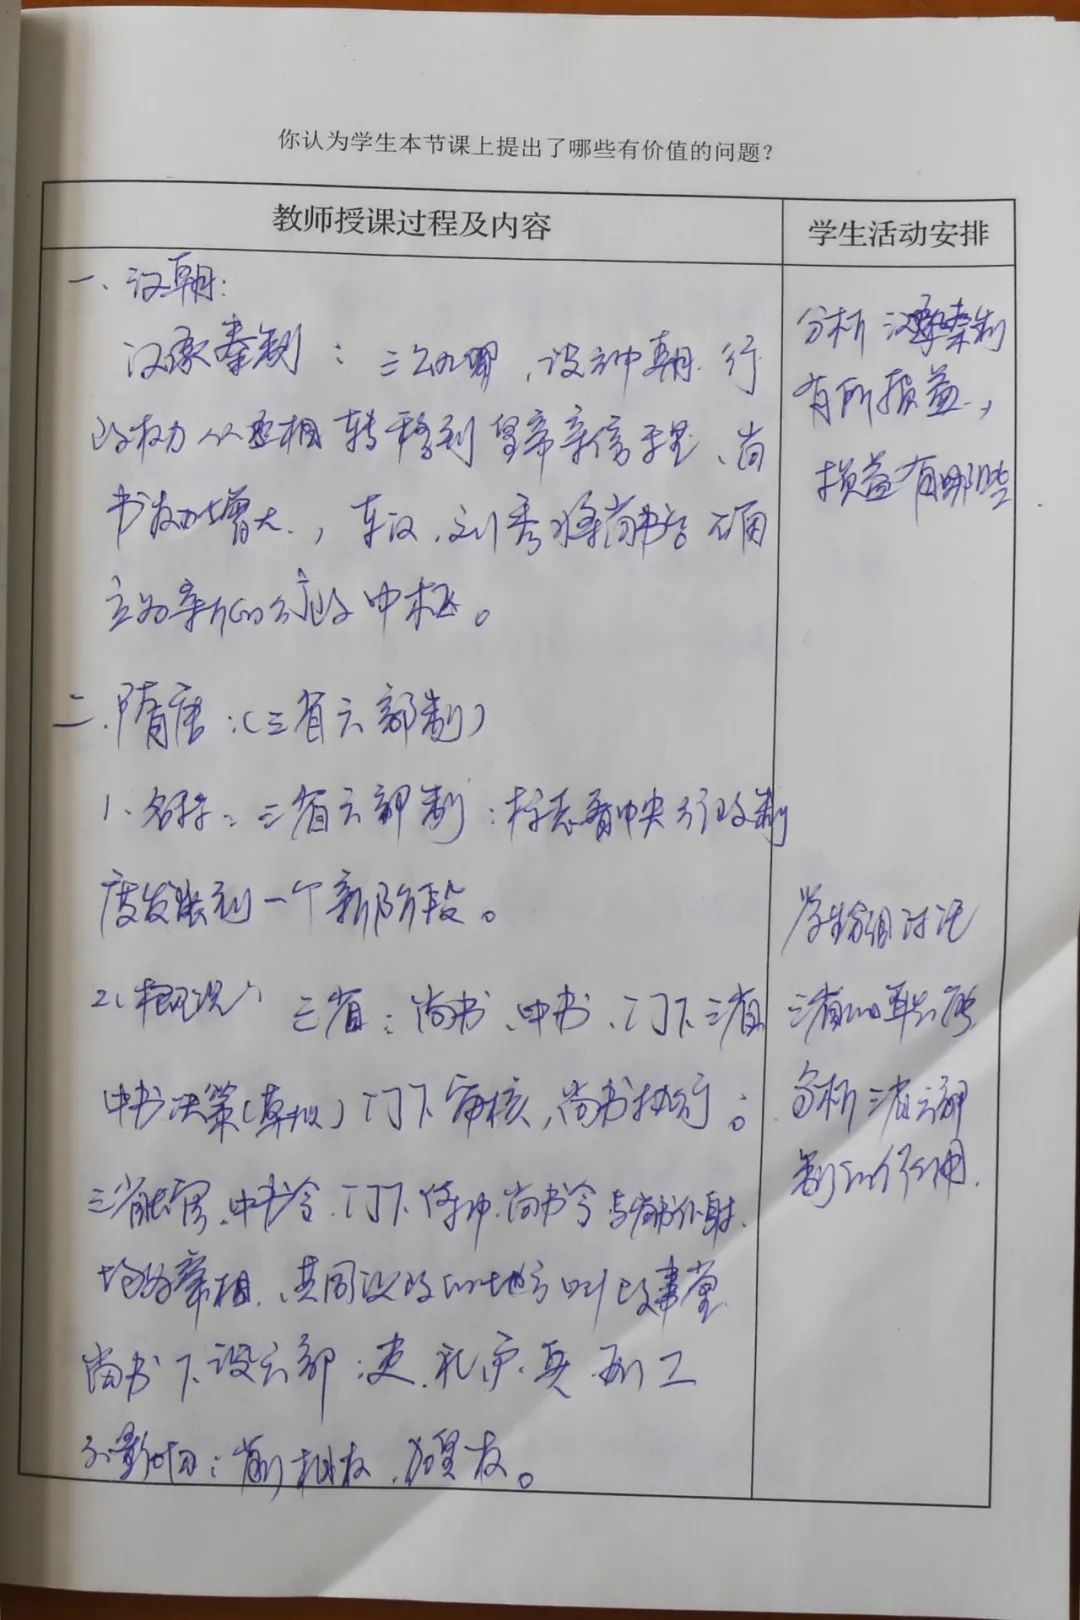 你认为学生本节课上提出了哪些有价值的问题？
教师授课过程及内容
学生活动安排
一、汉朝：
汉承秦制：三公九卿，设立中朝．行
政权力从丞相转移到皇帝亲信手里、尚
书权力增大，东汉．刘秀将尚书台正式确
立为新的行政中枢。
二．隋唐：（三省六部制）
1、名称：三省六部制：标志着中央行政制
度发展到一个新阶段。
2、概况：三省：尚书、中书、门下三省
中书决策（草拟）门下审核，尚书执行；
三省长官、中书令．门下侍中．尚书令与尚书仆射．
均为宰相．共同议政的地方叫政事堂
尚书下设六部：吏．礼户．兵 刑工
3、影响：削相权．加皇权。
分析汉承秦制
有所损益，
损益有哪些
学生分组讨论
三省的职能
分析三省六部
制的作用．